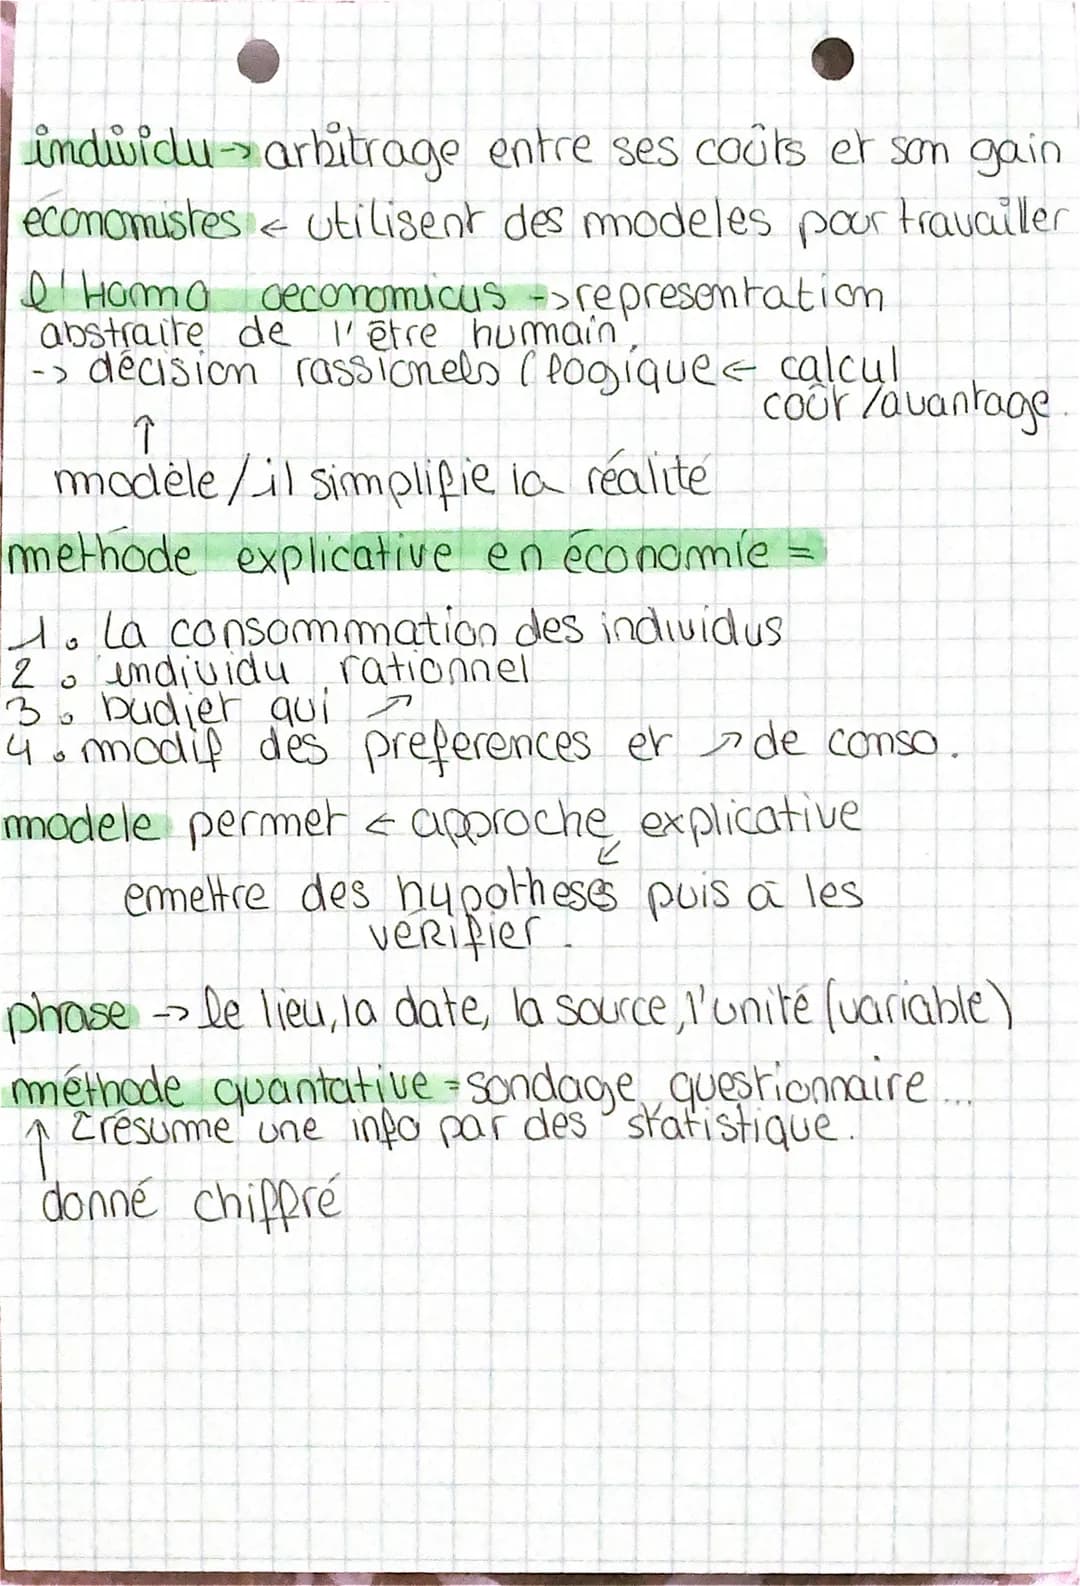 individu -> arbitrage entre ses coûts et son gain
economistes <- utilisent des modeles pour travailler
l'Homo oeconomicus -> representation
abstraite de l'être humain,
-> décision rassionels (logique <- calcul
coût /avantage.
↑
modèle / il simplifie la réalité
methode explicative en économie =
1. La consommmation des individus
2. individu rationnel
3. budjer qui ↗
4. modif des preferences et ↗ de conso.
modele permet <- approche explicative
↙
emettre des hypotheses puis a les
vérifier.
phase -> le lieu, la date, la source, l'unité (variable)
méthode quantative = sondage, questionnaire...
↑ résume une info par des statistique.
donné chiffré